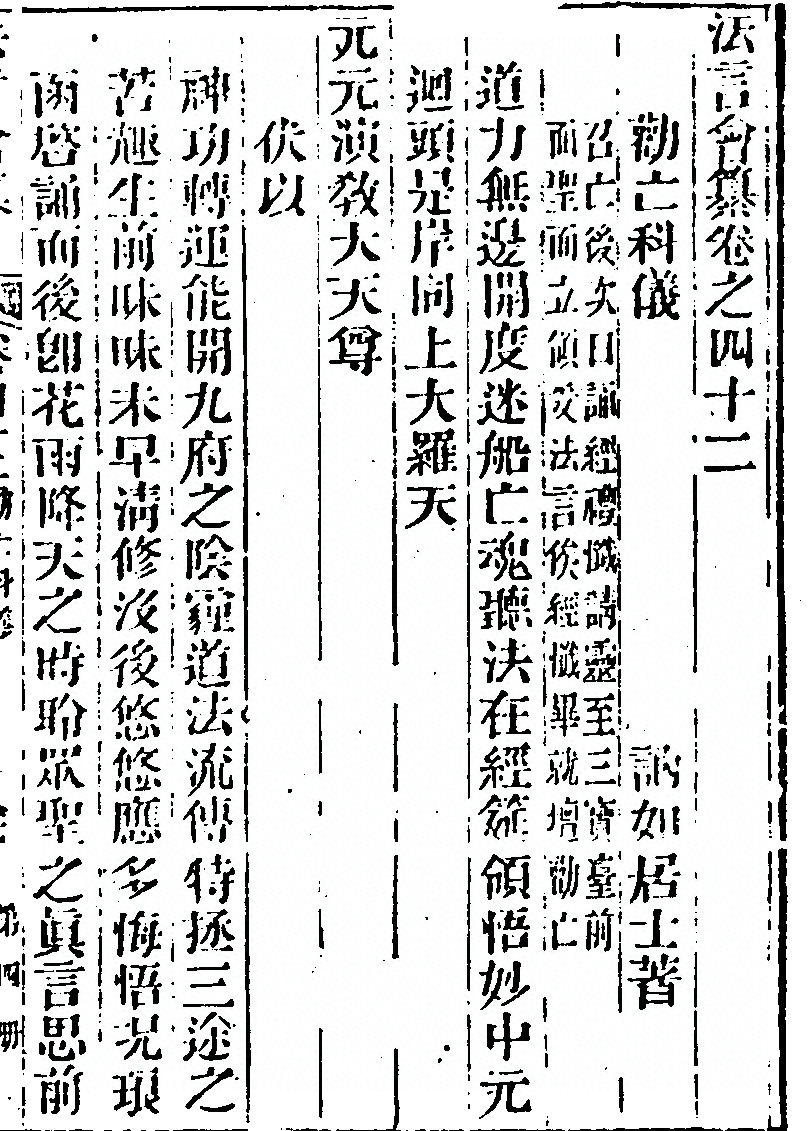 法言會纂卷之四十二
勸亡科儀　訥如居士著
召亡後次日誦經禮懺請靈至三寶臺前
面聖而立領受法言俟經懺畢就壇勸亡
道力無邊開度迷船亡魂聽法在經筵領悟妙中元
迴頭是岸同上大羅天
元元演教大天尊
伏以
神功轉運能開九府之陰霾道法流傳特拯三途之
苦趣生前昧昧未早淸修沒後悠悠應多悔悟況琅
函啓誦而後卽花雨降天之時聆眾聖之眞言思前